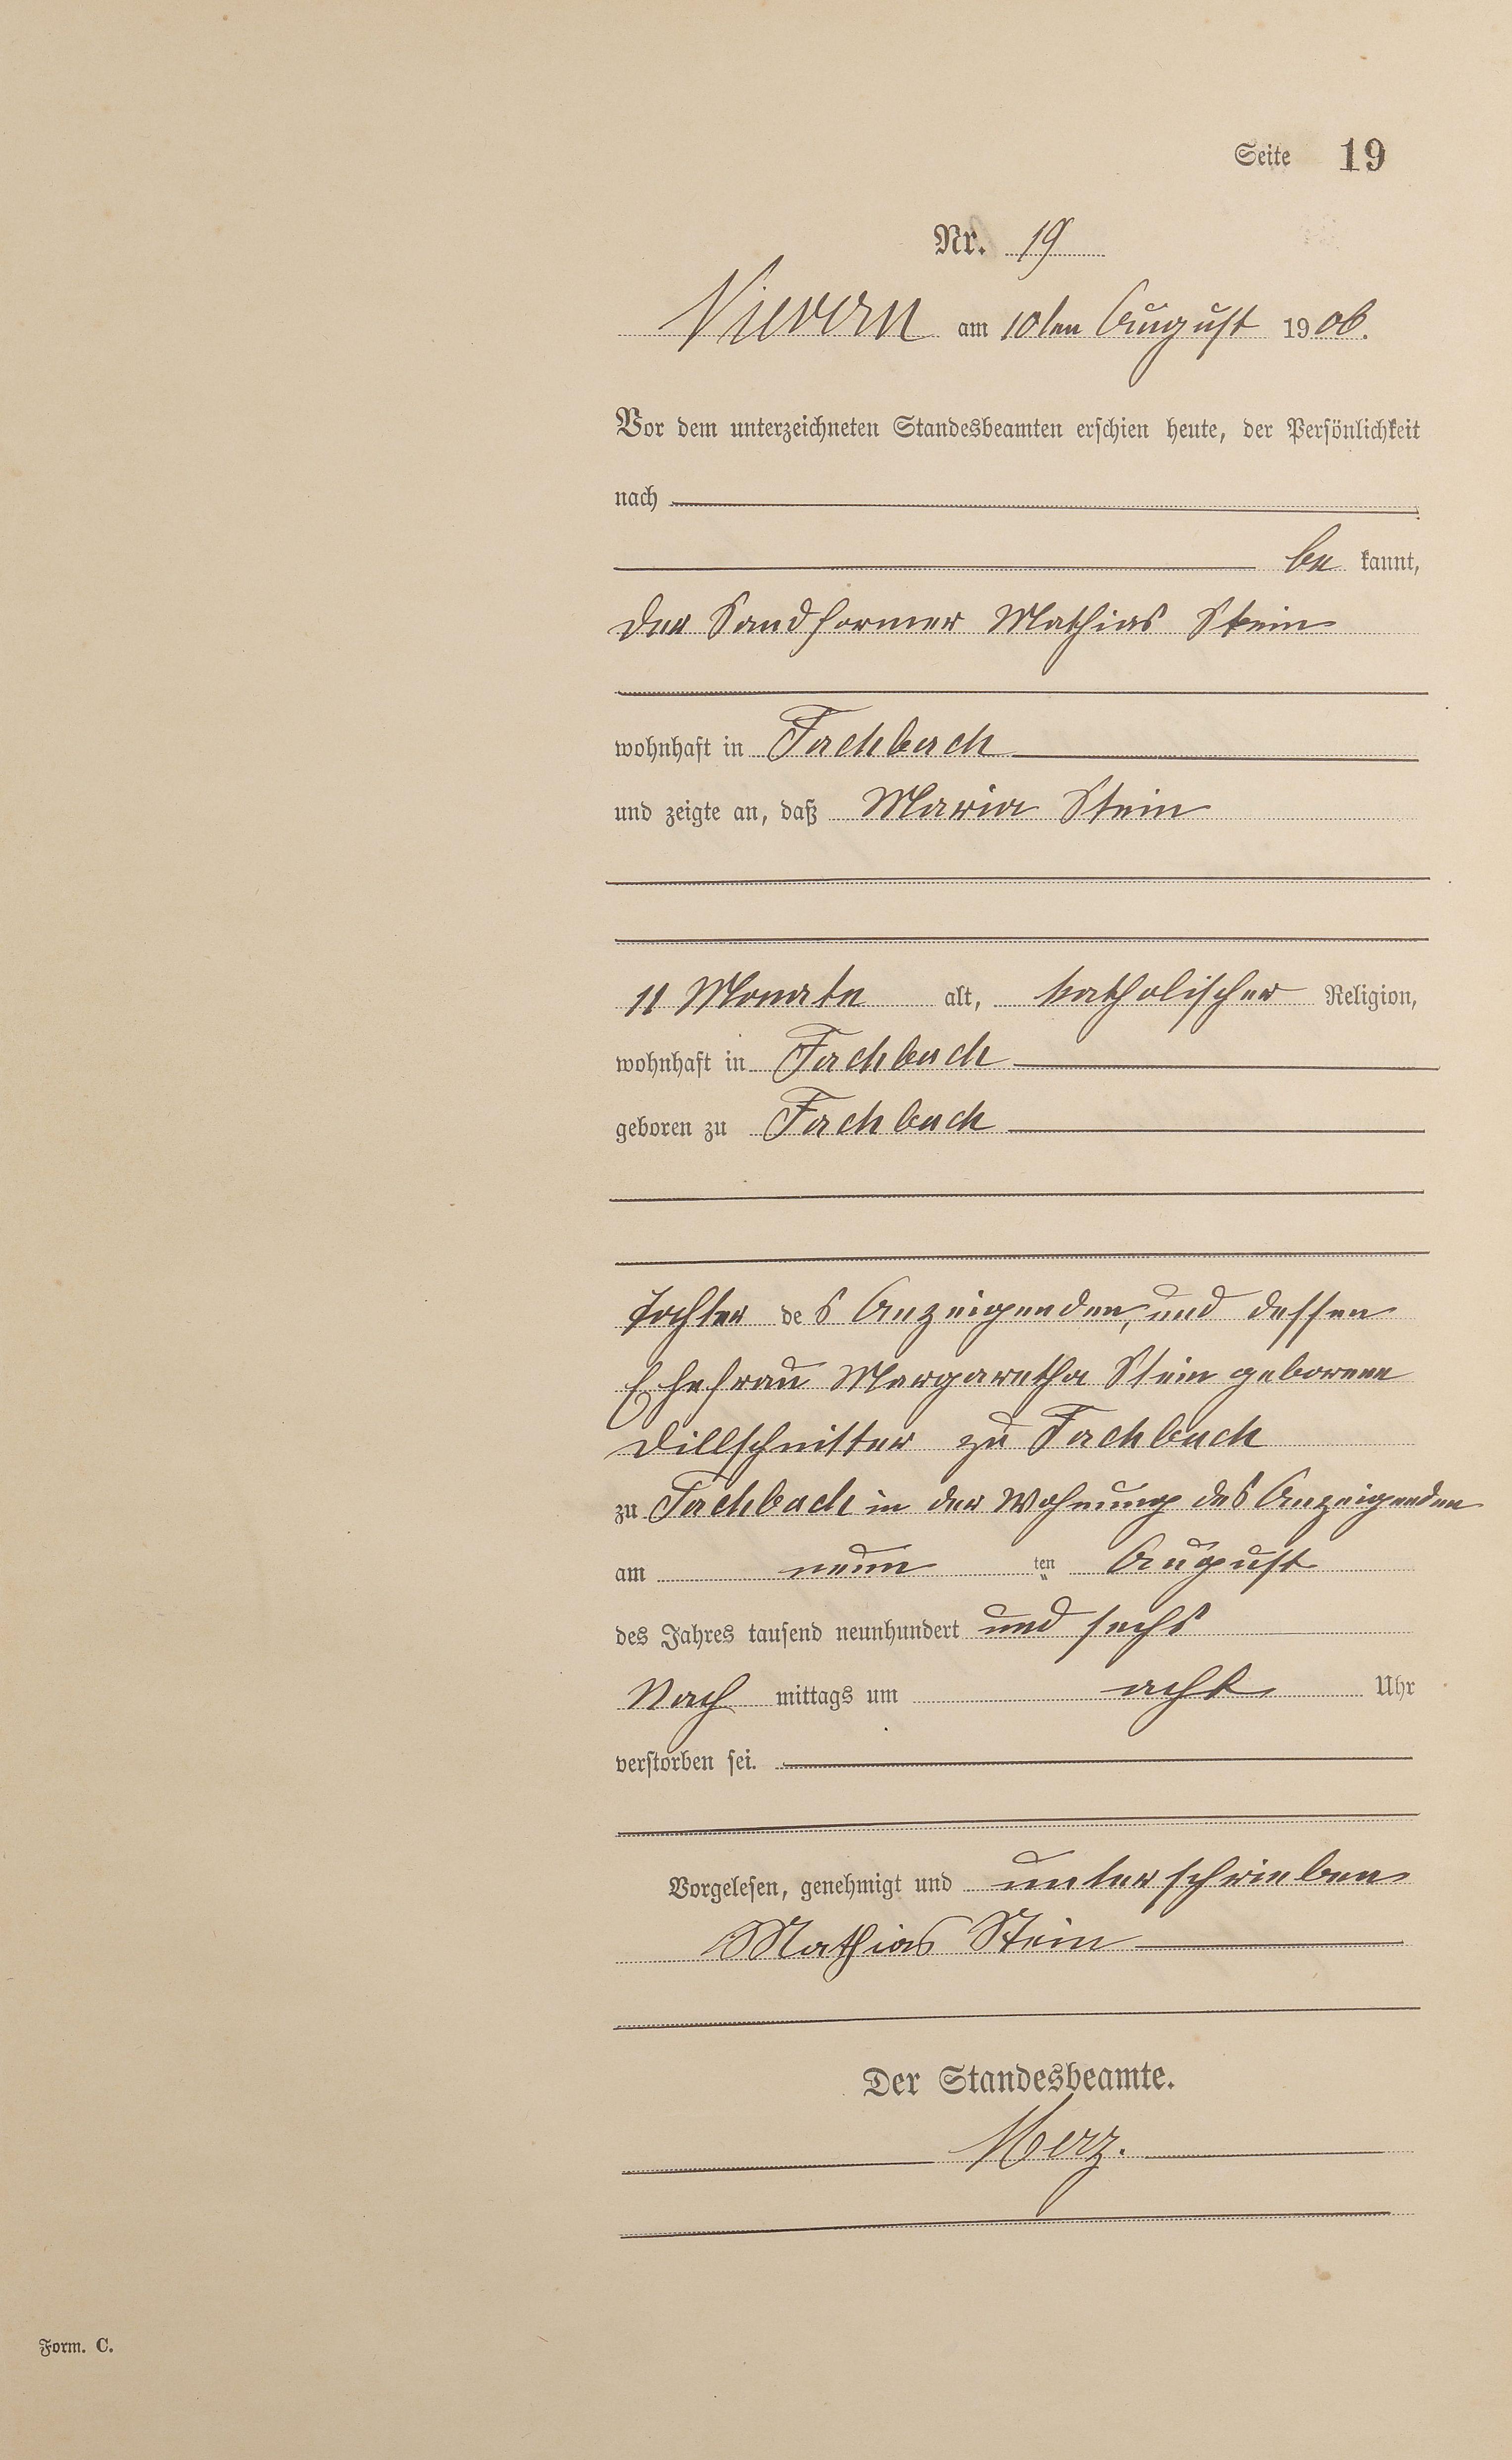 Seite 19
Nr. 19
Nievern am 10ten August 1906.
Vor dem unterzeichneten Standesbeamten erschien heute, der Persönlichkeit
nach
be kannt,
der Sandformer Mathias Stein
wohnhaft in Fachbach
und zeigte an, daß Maria Stein
11 Monate alt, katholischer Religion,
wohnhaft in Fachbach
geboren zu Fachbach
Tochter des Anzeigenden, und dessen
Ehefrau Margaretha Stein geborene
Dillschnitter zu Fachbach
zu Fachbach in der Wohnung des Anzeigenden
am neun ten August
des Jahres tausend neunhundert und sechs
Nach mittags um acht Uhr
verstorben sei.
Vorgelesen, genehmigt und unterschrieben
Mathias Stein
Der Standesbeamte.
Merz.
Form. C.